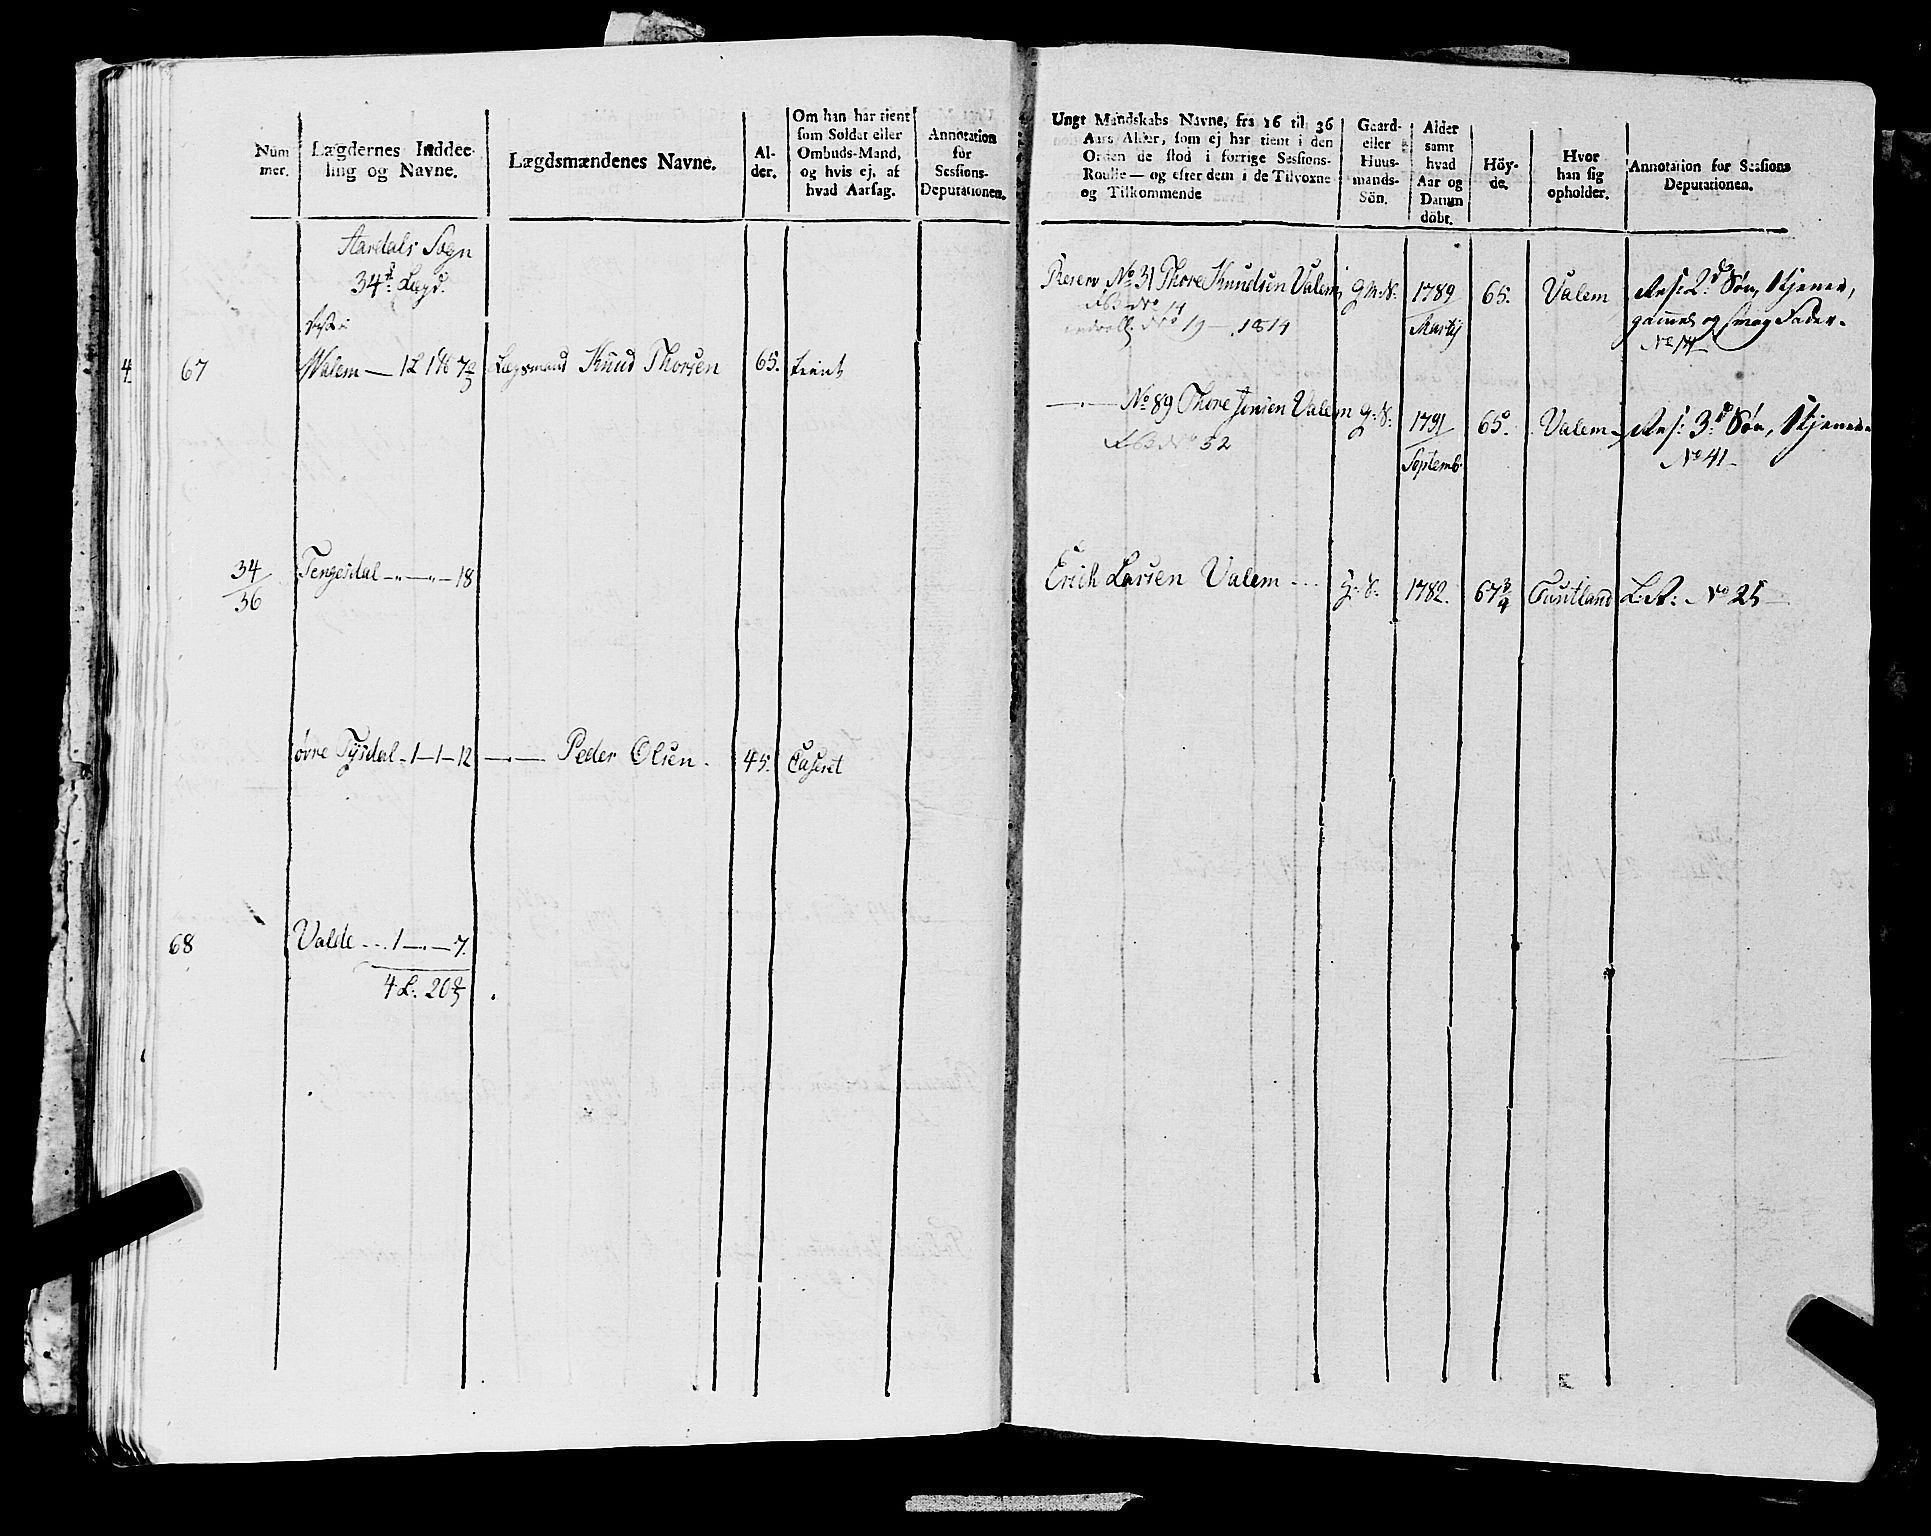 Num
mer.
Lægdernes Inddee-
ling og Navne.
Lægdsmændenes Navne.
Al-
der.
Om han har tient
som Soldat eller
Ombuds-Mand,
og hvis ej, af
hvad Aarsag.
Annotation
for
Sessions-
Deputationen.
Aardals Sogn
34te Lægd.
4
67
Walem — 1 L 1 7 2/3
Lægsmand Knud Thorsen
65.
tient
34/36
Tengesdal -"—"— 18
øvre Tysdal - 1—1—12
—"— Peder Olsen -
45.
Caseret
68
Valde --- 1 —"— 7.
4 L. 20 2/3
Ungt Mandskabs Navne, fra 16 til 36
Aars Alder, som ej har tient i den
Orden de stod i forrige Sessions-
Roulle — og efter dem i de Tilvoxne
og Tilkommende
Gaard-
eller
Huus-
mands-
Sön.
Alder
samt
hvad
Aar og
Datum
döbt.
Höy-
de.
Hvor
han sig
opholder.
Annotation for Sessions
Deputationen.
Reserv No 31 Thore Knudsen Valem
1789
65.
Valem
Res: 2d Søn, tjener,
No 14
No 19 — 1814
Martij
gammel og svag Fader.
No 14
—"— No 89 Thore Jonsen Valem
G: S:
1791
65.
Valem
Res: 3d Søn, tjener
No 52
Septemb.
No 41
Erich Larsen Valem ---
G: S:
1782.
67 3/4
L: R: No 25